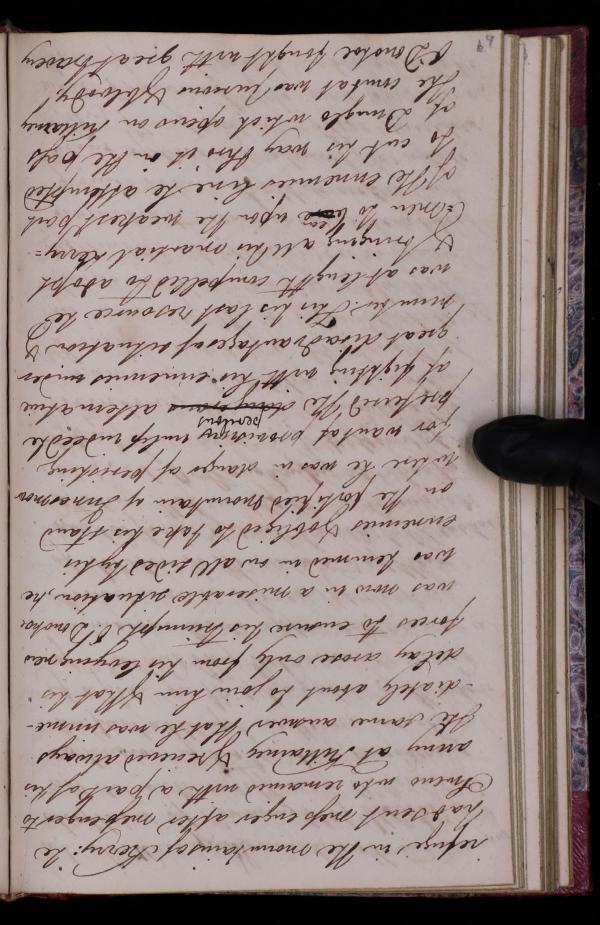 refuge in the mountains of Kerry: he
had sent messenger after messenger to
Friend who remained with a part of his
army at Killarney & received always
the same answer, that he was imme-
-diately about to join him & that his
delay arose only from his levying new
forces to ensure his triumph. O'Donohoe
was now in a miserable situation, he
was hemmed in on all sides by his
ennemies & obliged to take his stand
on the fortified mountain of
where he was in danger of perishing
for want of provisions, until indeed he
preferred the perilous alternative
of fighting with his ennemies under
great disadvantages of situation &
number. This his last resource he
was at length compelled to adopt
& bringing all his martial Kerry-
=men to bear upon the weakest part
of the ennemies line he attempted
to cut his way thro' it in the pass
of Dunglo which opens on Killarney
The combat was furious & bloody
O'Donohoe fought with great bravery
69